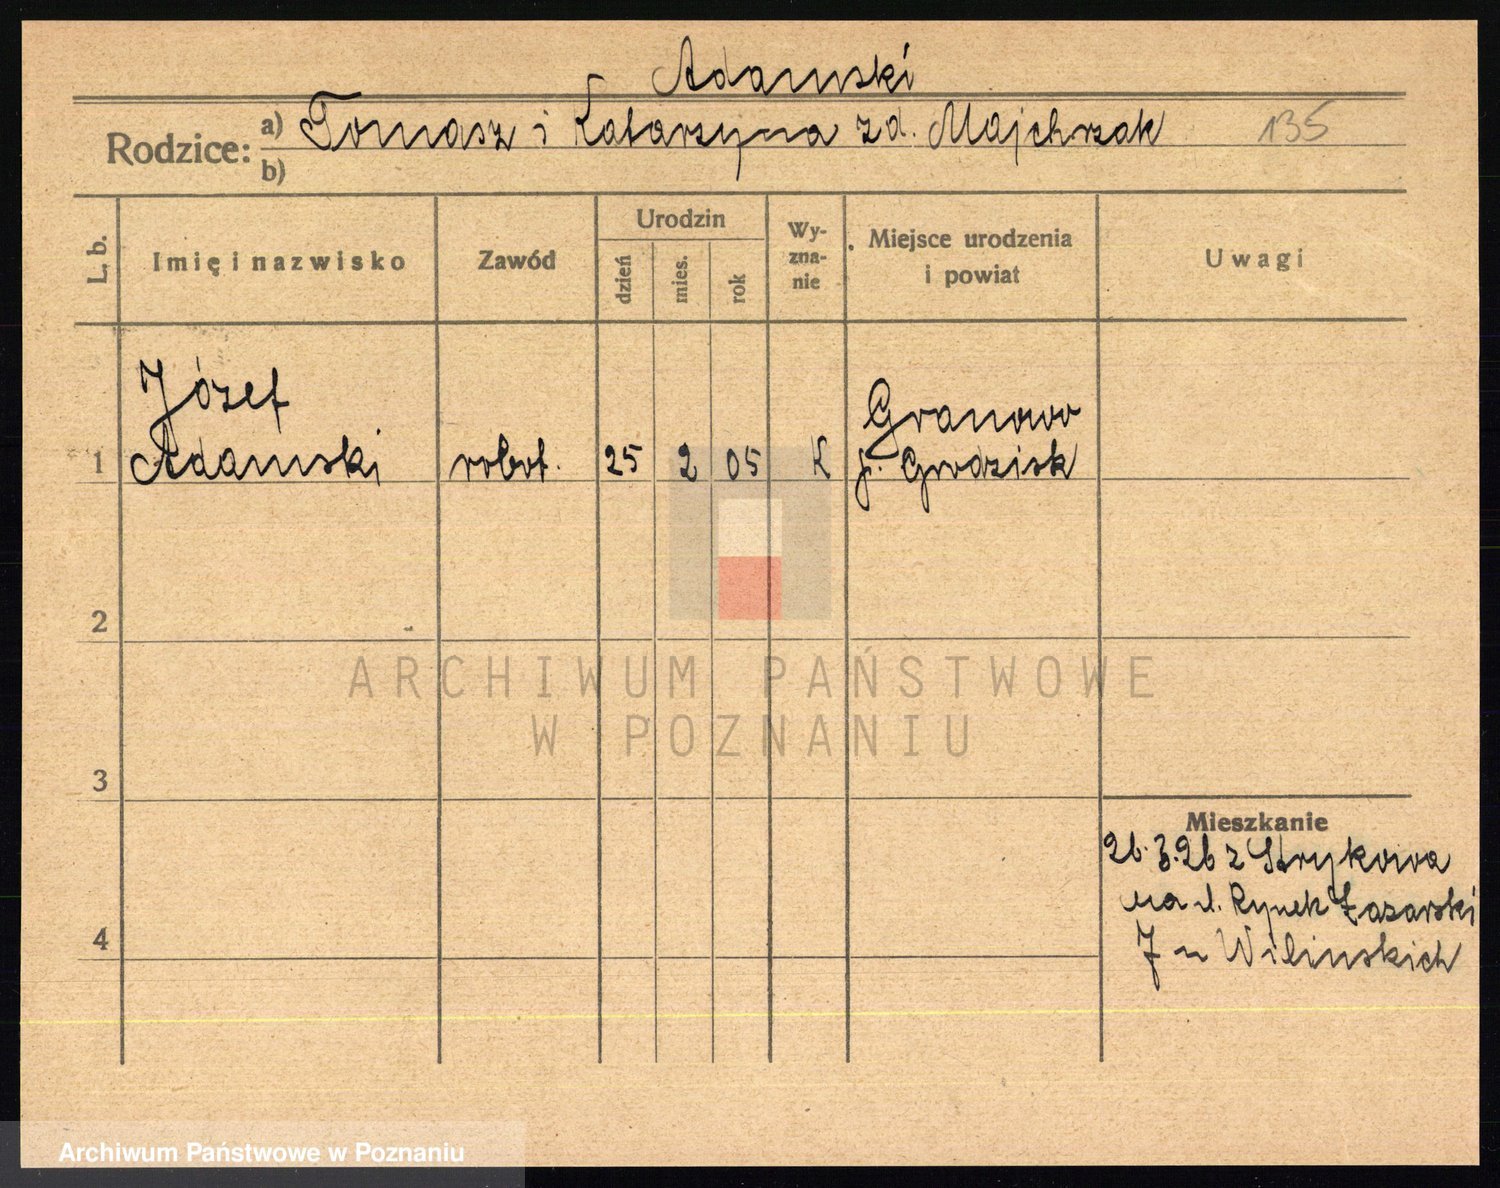 Adamski
Rodzice: a) Tomasz i Katarzyna zd. Majchrzak 135
b)
L. b. Imię i nazwisko Zawód Urodzin dzień mies. rok Wyzna-nie Miejsce urodzenia i powiat Uwagi
Józef Granowo
1 Adamski robot. 25 2 05 K p. Grodzisk
2
ARCHIWUM PAŃSTWOWE
W POZNANIU
3
Mieszkanie
26.3.26 z Strykowa
na ul. Rynek Łazarski
4
7 u Wilinskich
Archiwum Państwowe w Poznaniu